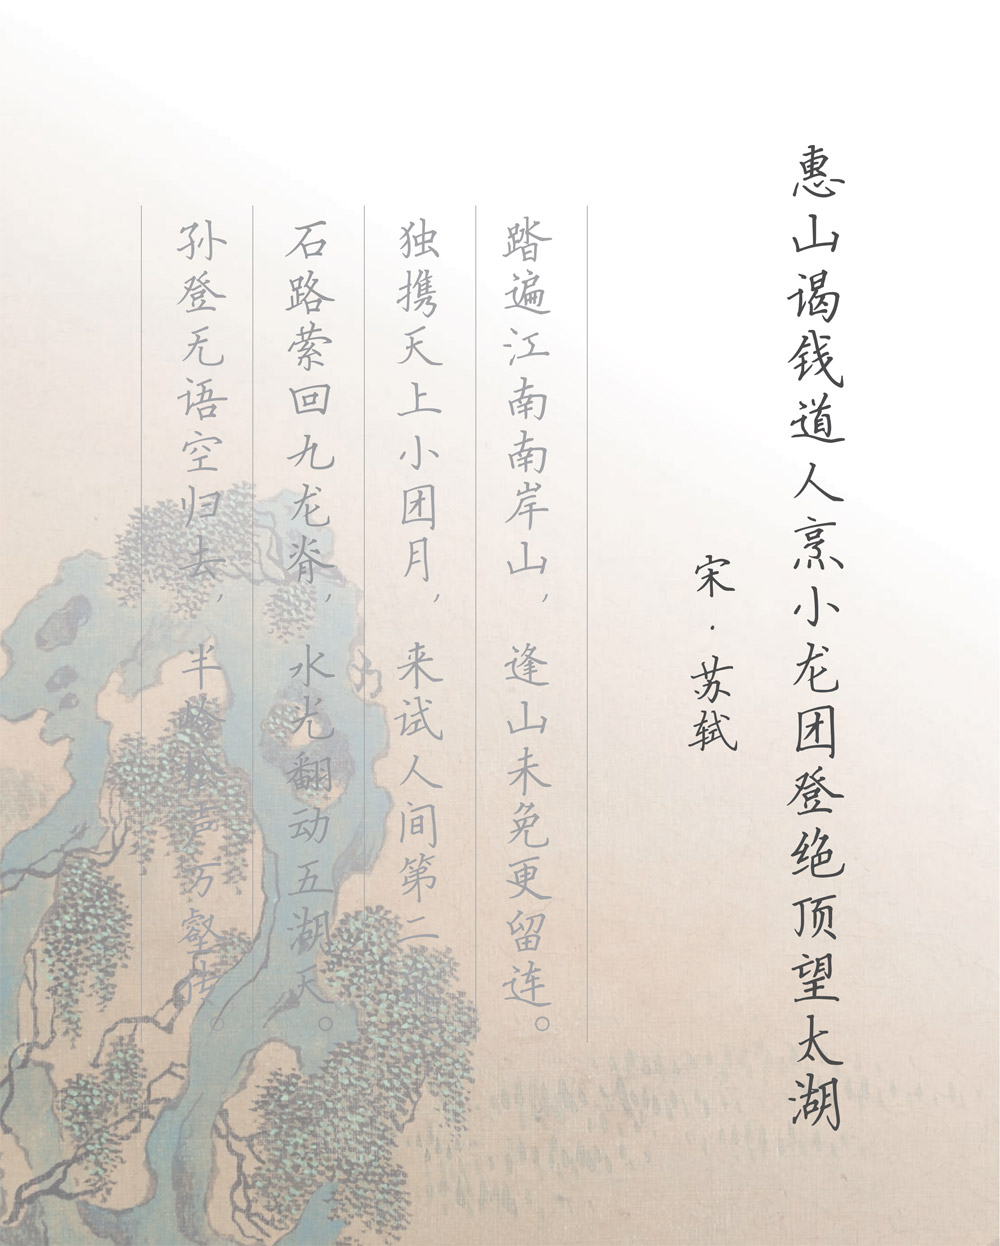 惠山谒钱道人烹小龙团登绝顶望太湖
宋·苏轼
踏遍江南南岸山，逢山未免更留连。
独携天上小团月，来试人间第二
石路萦回九龙脊，水光翻动五湖天。
孙登无语空归去，半岭松声万壑传。